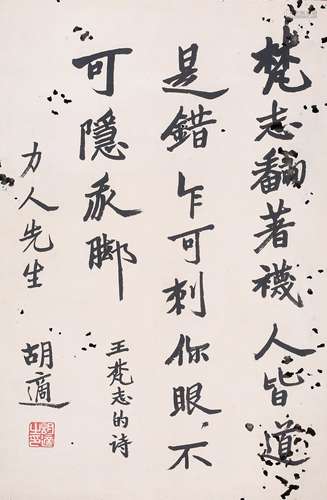 梵志翻著襪人皆道
是錯乍可刺你眼不
可隱我脚
王梵志的诗
力人先生
胡適
胡適之印